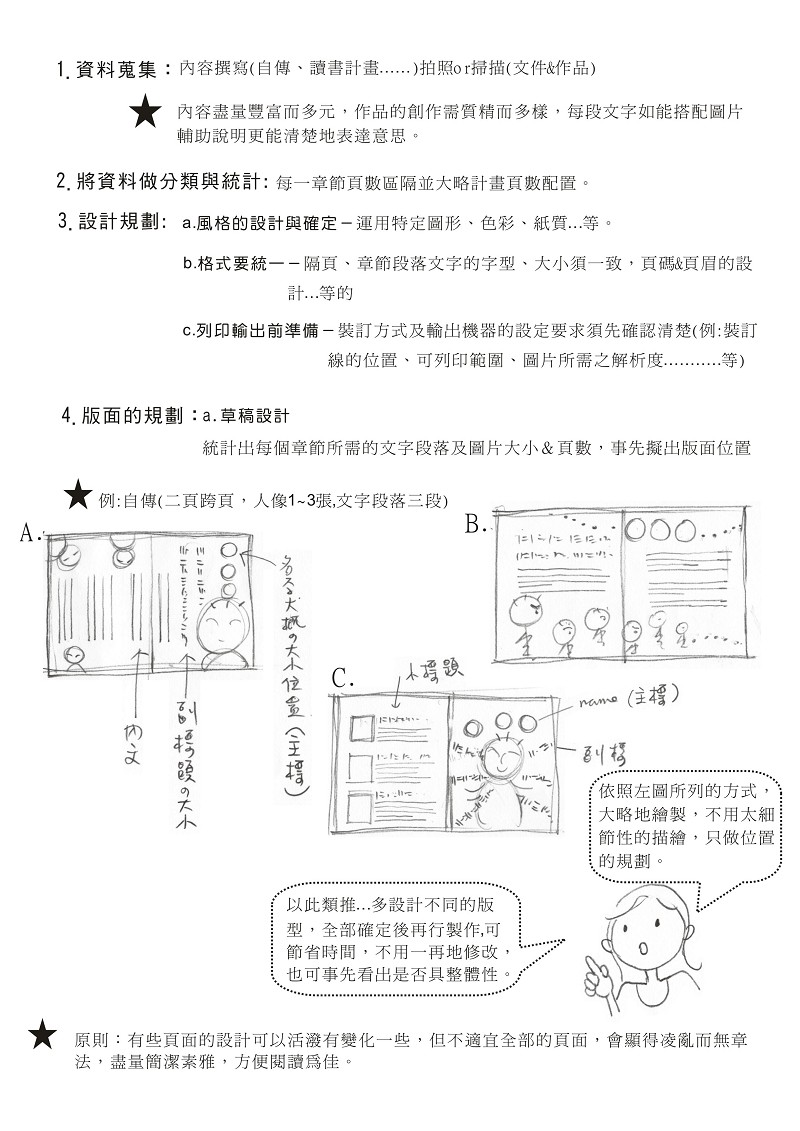 1.資料蒐集：內容撰寫(自傳、讀書計畫......)拍照or掃描(文件&作品)
★ 內容盡量豐富而多元，作品的創作需質精而多樣，每段文字如能搭配圖片
輔助說明更能清楚地表達意思。
2.將資料做分類與統計: 每一章節頁數區隔並大略計畫頁數配置。
3.設計規劃: a.風格的設計與確定－運用特定圖形、色彩、紙質...等。
b.格式要統一－隔頁、章節段落文字的字型、大小須一致，頁碼&頁眉的設
計...等的
c.列印輸出前準備－裝訂方式及輸出機器的設定要求須先確認清楚(例:裝訂
線的位置、可列印範圍、圖片所需之解析度...........等)
4.版面的規劃：a.草稿設計
統計出每個章節所需的文字段落及圖片大小＆頁數，事先擬出版面位置
★ 例:自傳(二頁跨頁，人像1~3張,文字段落三段)
A.
B.
內文
副標題の大小
大概の大小位置(主標)
C.
小標題
name (主標)
副標
依照左圖所列的方式，
大略地繪製，不用太細
節性的描繪，只做位置
的規劃。
以此類推...多設計不同的版
型，全部確定後再行製作,可
節省時間，不用一再地修改，
也可事先看出是否具整體性。
★ 原則：有些頁面的設計可以活潑有變化一些，但不適宜全部的頁面，會顯得凌亂而無章
法，盡量簡潔素雅，方便閱讀爲佳。